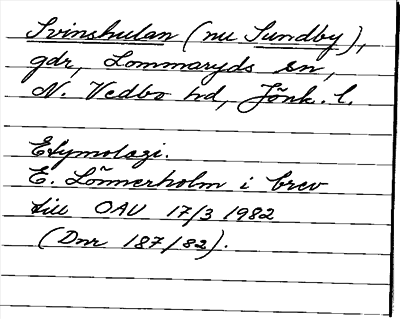 Svinshulan (nu Sundby),
gdr, Lommaryds sn,
N. Vedbo hd, Jönk. l.
Etymologi.
E. Lönnerholm i brev
till OAU 17/3 1982
(Dnr 187/82).